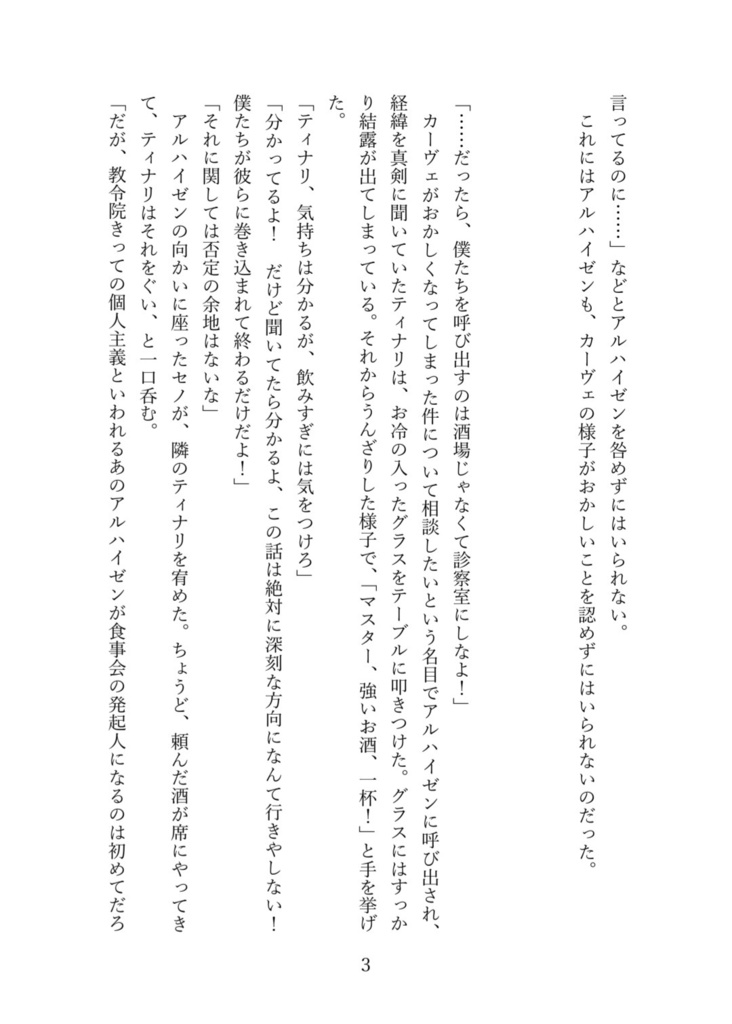 言ってるのに……」などとアルハイゼンを咎めずにはいられない。
　これにはアルハイゼンも、カーヴェの様子がおかしいことを認めずにはいられないのだった。
「……だったら、僕たちを呼び出すのは酒場じゃなくて診察室にしなよ！」
　カーヴェがおかしくなってしまった件について相談したいという名目でアルハイゼンに呼び出され、
経緯を真剣に聞いていたティナリは、お冷の入ったグラスをテーブルに叩きつけた。グラスにはすっか
り結露が出てしまっている。それからうんざりした様子で、「マスター、強いお酒、一杯！」と手を挙げ
た。
「ティナリ、気持ちは分かるが、飲みすぎには気をつけろ」
「分かってるよ！　だけど聞いてたら分かるよ、この話は絶対に深刻な方向になんて行きやしない！
僕たちが彼らに巻き込まれて終わるだけだよ！」
「それに関しては否定の余地はないな」
　アルハイゼンの向かいに座ったセノが、隣のティナリを宥めた。ちょうど、頼んだ酒が席にやってき
て、ティナリはそれをぐい、と一口呑む。
「だが、教令院きっての個人主義といわれるあのアルハイゼンが食事会の発起人になるのは初めてだろ
3